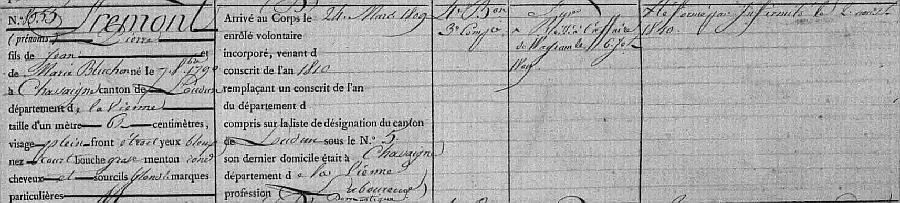 N.° 1555 Tremont
(prénoms) Pierre
fils de Jean et
de Marie Bluchon né le 7 8bre 1790
à Chavaign canton de Loudun
département de la Vienne
taille d'un mètre 62 centimètres,
visage plein front étroit yeux bleus
nez court bouche grase menton rond
cheveux et sourcils blonds marques
particulières
Arrivé au Corps le 24 Mars 1809
enrôlé volontaire
incorporé, venant d
conscrit de l'an 1810
remplaçant un conscrit de l'an
du département d
compris sur la liste de désignation du canton
de Loudun sous le N.° 5
son dernier domicile était à Chavaigne
département de la Vienne
profession Laboureur
Domestique
4e Bon
3e Compie
à l'affaire
de Wagram le 6 Jet
1809
Réformé par Infirmité le 2 aout
1810